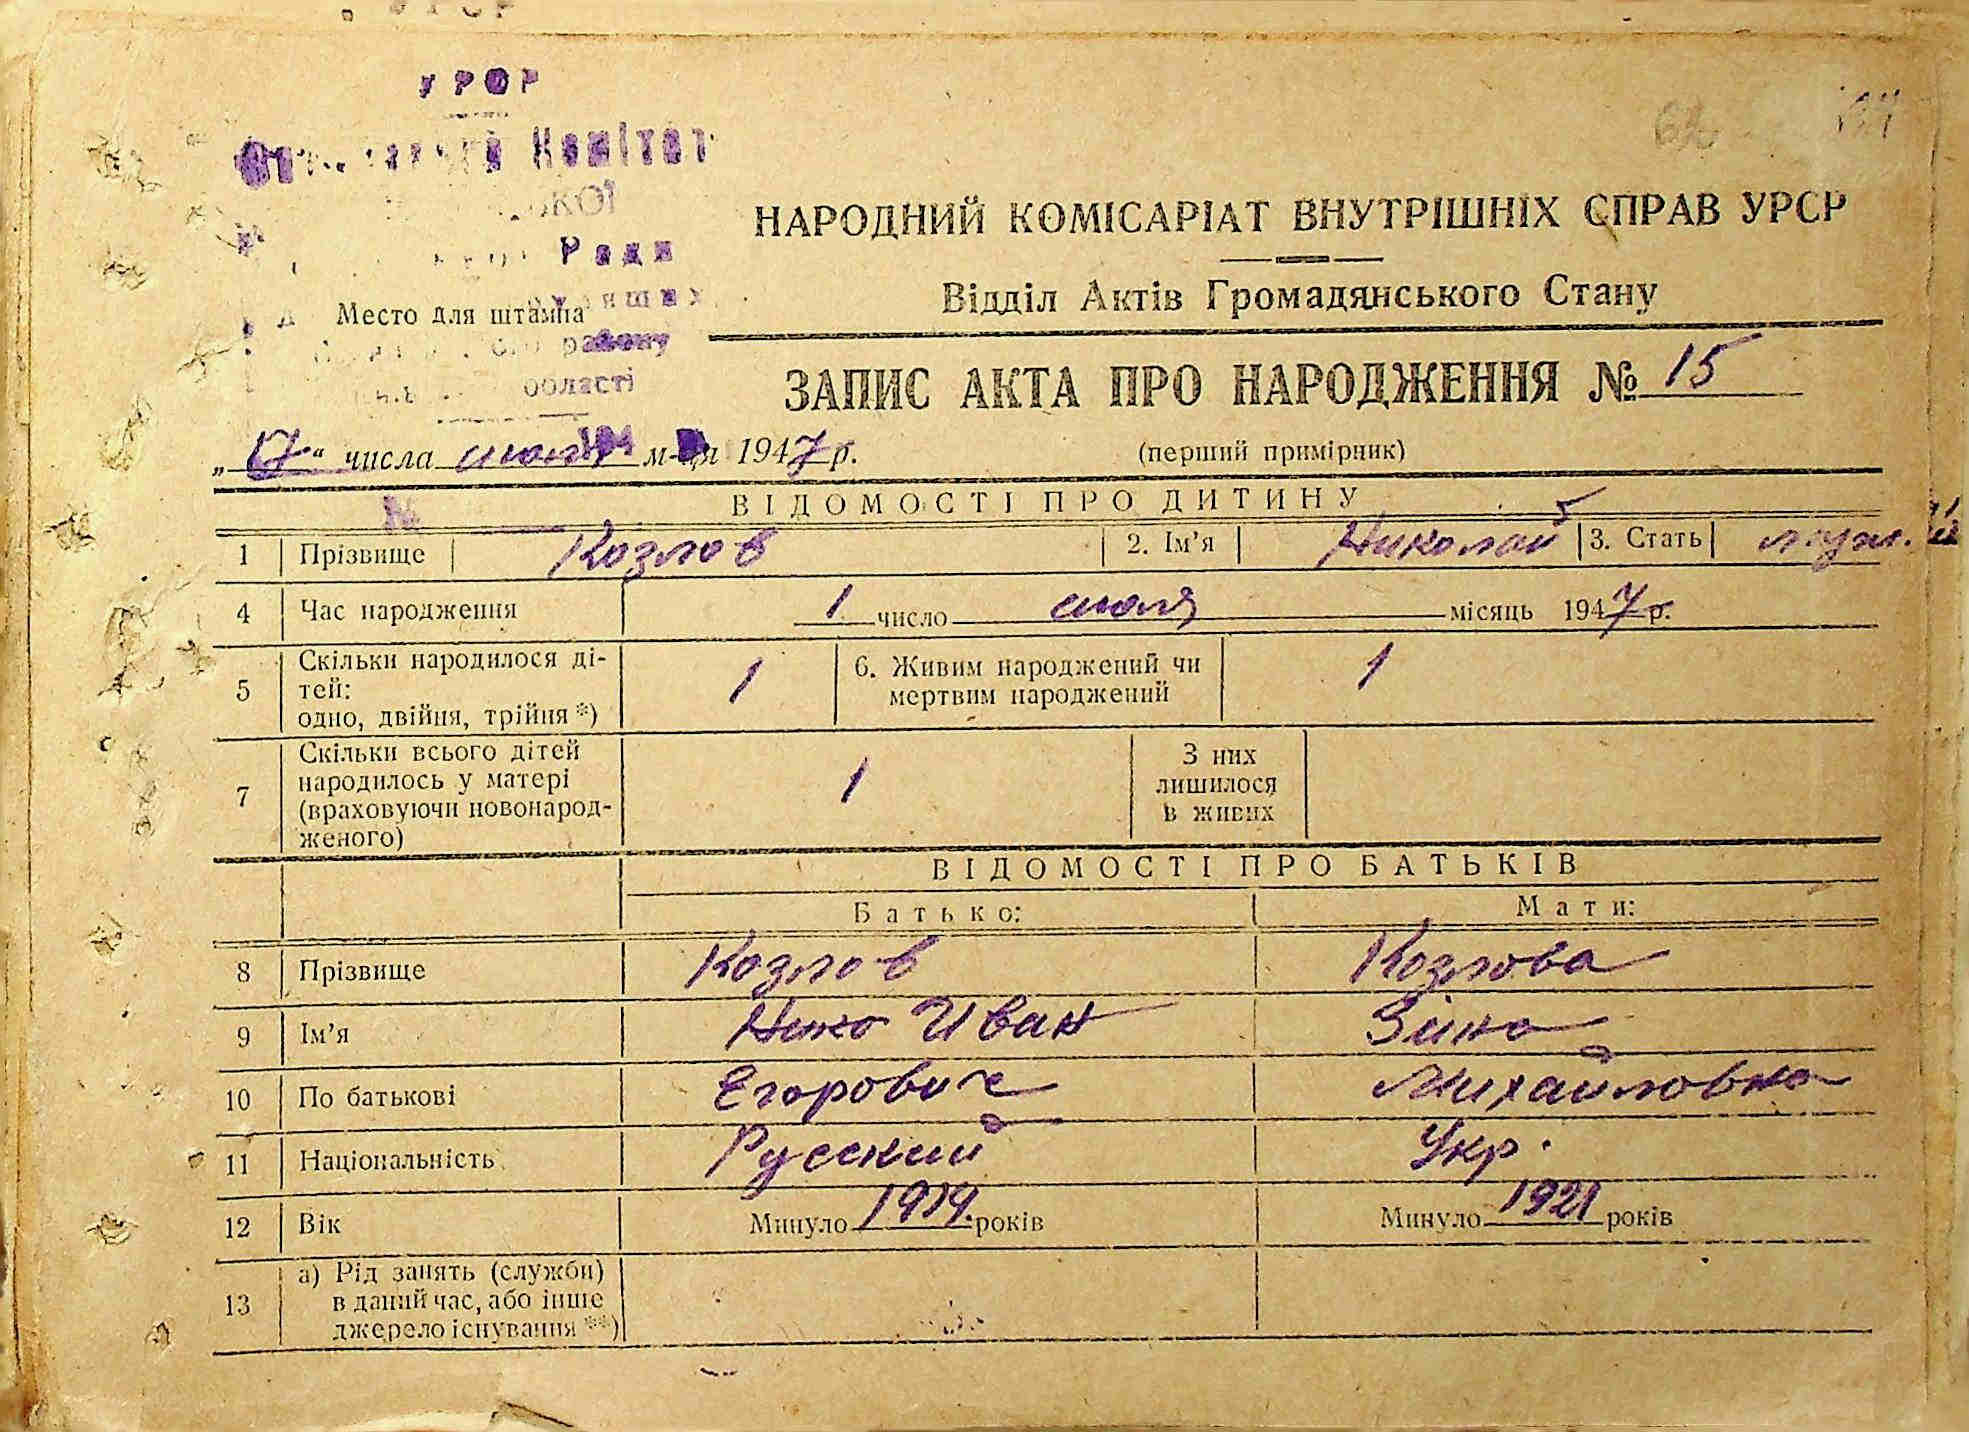 УРСР
Комітет
Ради
Место для штампа
району
області
НАРОДНИЙ КОМІСАРІАТ ВНУТРІШНІХ СПРАВ УРСР
Відділ Актів Громадянського Стану
ЗАПИС АКТА ПРО НАРОДЖЕННЯ № 15
„17“ числа июля м-ця 1947 р. (перший примірник)
ВІДОМОСТІ ПРО ДИТИНУ
1 Прізвище Козлов 2. Ім’я Николай 3. Стать
4 Час народження 1 число июля місяць 1947 р.
5 Скільки народилося ді-
тей:
одно, двійня, трійня *) 1 6. Живим народжений чи
мертвим народжений 1
7 Скільки всього дітей
народилось у матері
(враховуючи новонарод-
женого) 1 З них
лишилося
в живих
ВІДОМОСТІ ПРО БАТЬКІВ
Батько: Мати:
8 Прізвище Козлов Козлова
9 Ім’я Нико Иван Зина
10 По батькові Егорович Михайловна
11 Національність Русский Укр.
12 Вік Минуло 1919 років Минуло 1921 років
13 а) Рід занять (служби)
в даний час, або інше
джерело існування **)